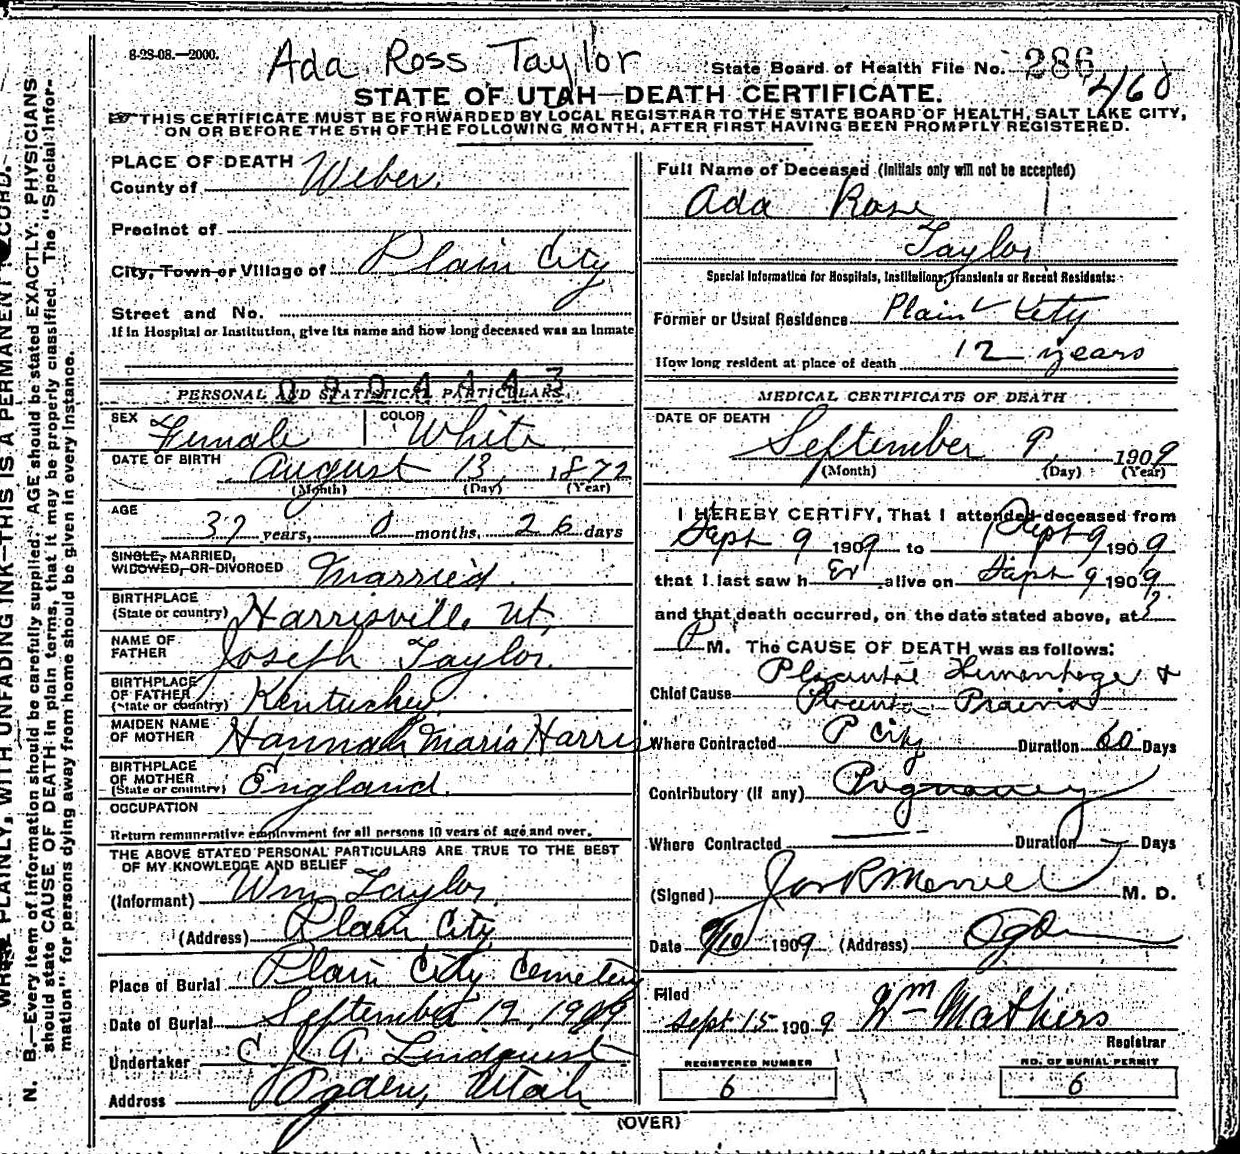 8-28-08.—2000.
Ada Ross Taylor
State Board of Health File No. 286
460
STATE OF UTAH—DEATH CERTIFICATE.
THIS CERTIFICATE MUST BE FORWARDED BY LOCAL REGISTRAR TO THE STATE BOARD OF HEALTH, SALT LAKE CITY,
ON OR BEFORE THE 5TH OF THE FOLLOWING MONTH, AFTER FIRST HAVING BEEN PROMPTLY REGISTERED.
PLACE OF DEATH
County of Weber.
Precinct of
City, Town or Village of Plain City
Street and No.
If in Hospital or Institution, give its name and how long deceased was an Inmate
0904443
PERSONAL AND STATISTICAL PARTICULARS.
SEX Female COLOR White
DATE OF BIRTH August 13, 1872
(Month) (Day) (Year)
AGE
37 years, 0 months, 26 days
SINGLE, MARRIED,
WIDOWED, OR DIVORCED Married.
BIRTHPLACE
(State or country) Harrisville Ut.
NAME OF
FATHER Joseph Taylor.
BIRTHPLACE
OF FATHER
(State or country) Kentuckey.
MAIDEN NAME
OF MOTHER Hannah Maria Harris
BIRTHPLACE
OF MOTHER
(State or country) England.
OCCUPATION
Return remunerative employment for all persons 10 years of age and over.
THE ABOVE STATED PERSONAL PARTICULARS ARE TRUE TO THE BEST
OF MY KNOWLEDGE AND BELIEF
(Informant) Wm Taylor,
(Address) Plain City
Place of Burial Plain City Cemetery
Date of Burial September 12, 1909
Undertaker C. J. A. Lindquist
Address Ogden, Utah
Full Name of Deceased (Initials only will not be accepted)
Ada Rose
Taylor
Special Information for Hospitals, Institutions, Transients or Recent Residents:
Former or Usual Residence Plain City
How long resident at place of death 12 years
MEDICAL CERTIFICATE OF DEATH
DATE OF DEATH
September 9, 1909
(Month) (Day) (Year)
I HEREBY CERTIFY, That I attended deceased from
Sept 9 1909 to Sept 9 1909
that I last saw h er alive on Sept 9 1909
and that death occurred, on the date stated above, at 3
P M. The CAUSE OF DEATH was as follows:
Chief Cause Placental Hemorrhage &
Placenta Praevia
Where Contracted P City Duration 60 Days
Contributory (if any) Pregnancy
Where Contracted Duration Days
(Signed) Jos R Morrell M. D.
Date 9/10 1909 (Address) Ogden
Filed
Sept 15 1909 Wm Mathers
Registrar
REGISTERED NUMBER
6
NO. OF BURIAL PERMIT
6
(OVER)
WRITE PLAINLY, WITH UNFADING INK—THIS IS A PERMANENT RECORD.
N. B.—Every item of information should be carefully supplied. AGE should be stated EXACTLY. PHYSICIANS
should state CAUSE OF DEATH in plain terms, that it may be properly classified. The "Special Infor-
mation" for persons dying away from home should be given in every instance.